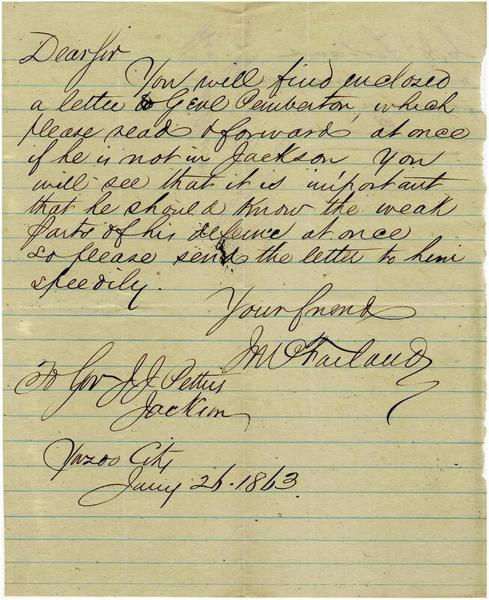 Dear Sir
You will find enclosed
a letter to Genl Pemberton, which
please read & forward at once
if he is not in Jackson You
will see that it is important
that he should know the weak
parts of his defence at once
so please send the letter to him
speedily.
Your friend
J McFarland
To Gov J.J. Pettus
Jackson
Yazoo City
Jany 26. 1863